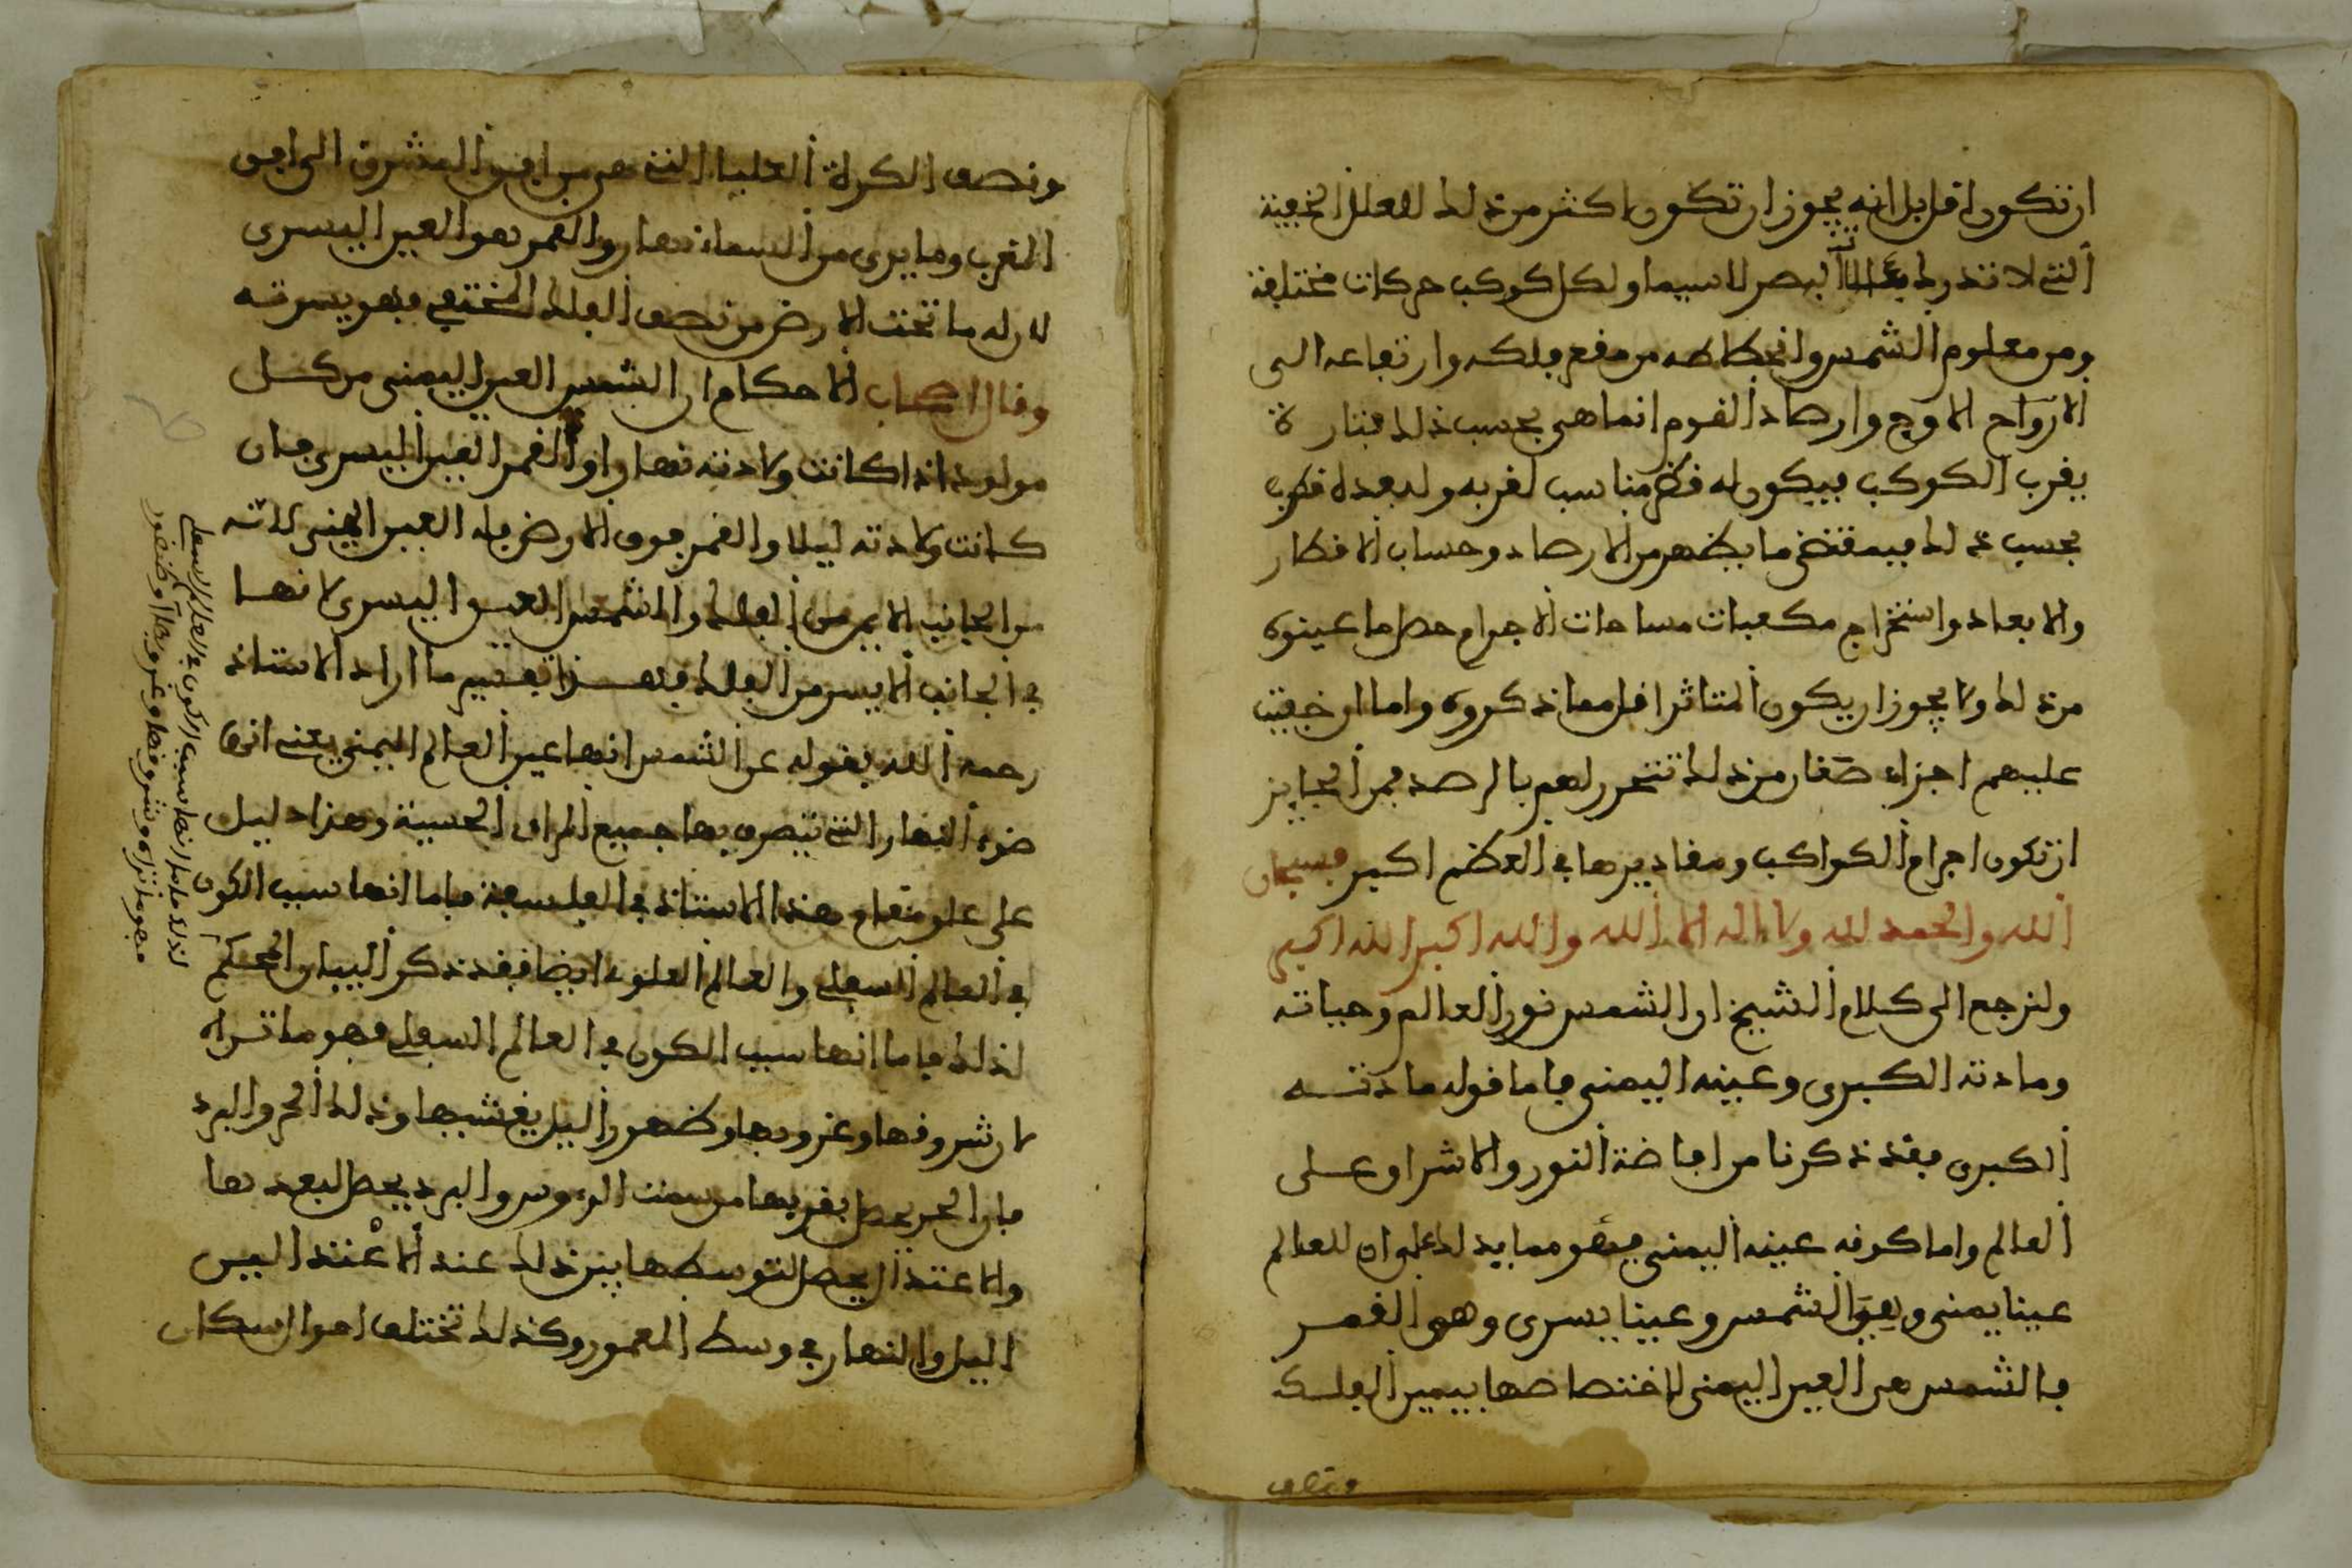 ان تكون اقل بل انه يجوز ان تكون اكثر من ذلك للعلل الخفية
التي لا تدرك البصر لا سيما ولكل كوكب حركات مختلفة
ومن معلوم الشمس وانحطاطه من مقعر فلكه وارتفاعه الى
الارواح الاوج وارصاد القوم انما هي بحسب ذلك فتارة
يقرب الكوكب فيكون له قطر مناسب لقربه ولبعده قطر
بحسب ذلك فبمقتضى ما يظهر من الارصاد وحساب الاقطار
والابعاد واستخراج مكعبات مساحات الاجرام حصل ما عينوه
من ذلك ولا يجوز ان يكون المتاثر اقل مما ذكروه واما ان خفيت
عليهم اجزاء صغار من ذلك تتحرر لهم بالرصد فمن الجايز
ان تكون اجرام الكواكب ومقاديرها في العظم اكبر فسبحان
الله والحمد لله ولا اله الا الله والله اكبر الله اكبر
ولنرجع الى كلام الشيخ ان الشمس نور العالم وحياته
ومادته الكبرى وعينه اليمنى فاما قوله مادته
الكبرى فقد ذكرنا من افاضة النور والاشراق على
العالم واما كونه عينه اليمنى فهو مما يدلك على ان للعالم
عينا يمنى وهي الشمس وعينا يسرى وهو القمر
فالشمس هي العين اليمنى لاختصاصها بيمين الفلك
ونصف
ونصف الكرة العليا التي هي من افق المشرق الى افق
المغرب وما يرى من السماء نهارا والقمر هو العين اليسرى
لان له ما تحت الارض من نصف الفلك المختفي فهو يسرته
وقال اصحاب الاحكام ان الشمس العين اليمنى من كل
مولود اذا كانت ولادته نهارا والقمر العين اليسرى فان
كانت ولادته ليلا والقمر فوق الارض فله العين اليمنى لانه
من الجانب الايمن من الفلك والشمس العين اليسرى لانها
في الجانب الايسر من الفلك فهذا تفسير ما اراد الاستاذ
رحمه الله بقوله عن الشمس انها عين العالم اليمنى يعني انها
ضوء النهار التي تبصر بها جميع المراى الحسية وهذا دليل
على علو مقام هذا الاستاذ في الفلسفة فاما انها سبب الكون
في العالم السفلي والعالم العلوي ايضا فقد ذكر البيان المحكم
لذلك فاما انها سبب الكون في العالم السفلي فهو ما تراه
من شروقها وغروبها وظهور اليل يغشيها وذلك الحر والبرد
فان الحر يحصل بقربها من سمت الرءوس والبرد يحصل لبعدها
والاعتدال يحصل لتوسطها بين ذلك عند الاعتدالين
اليل والنهار في وسط المعمور وكذلك تختلف احوال سكان
لذلك فاما انها سبب الكون في العالم السفلي
فهو ما تراه من شروقها وغروبها وظهور